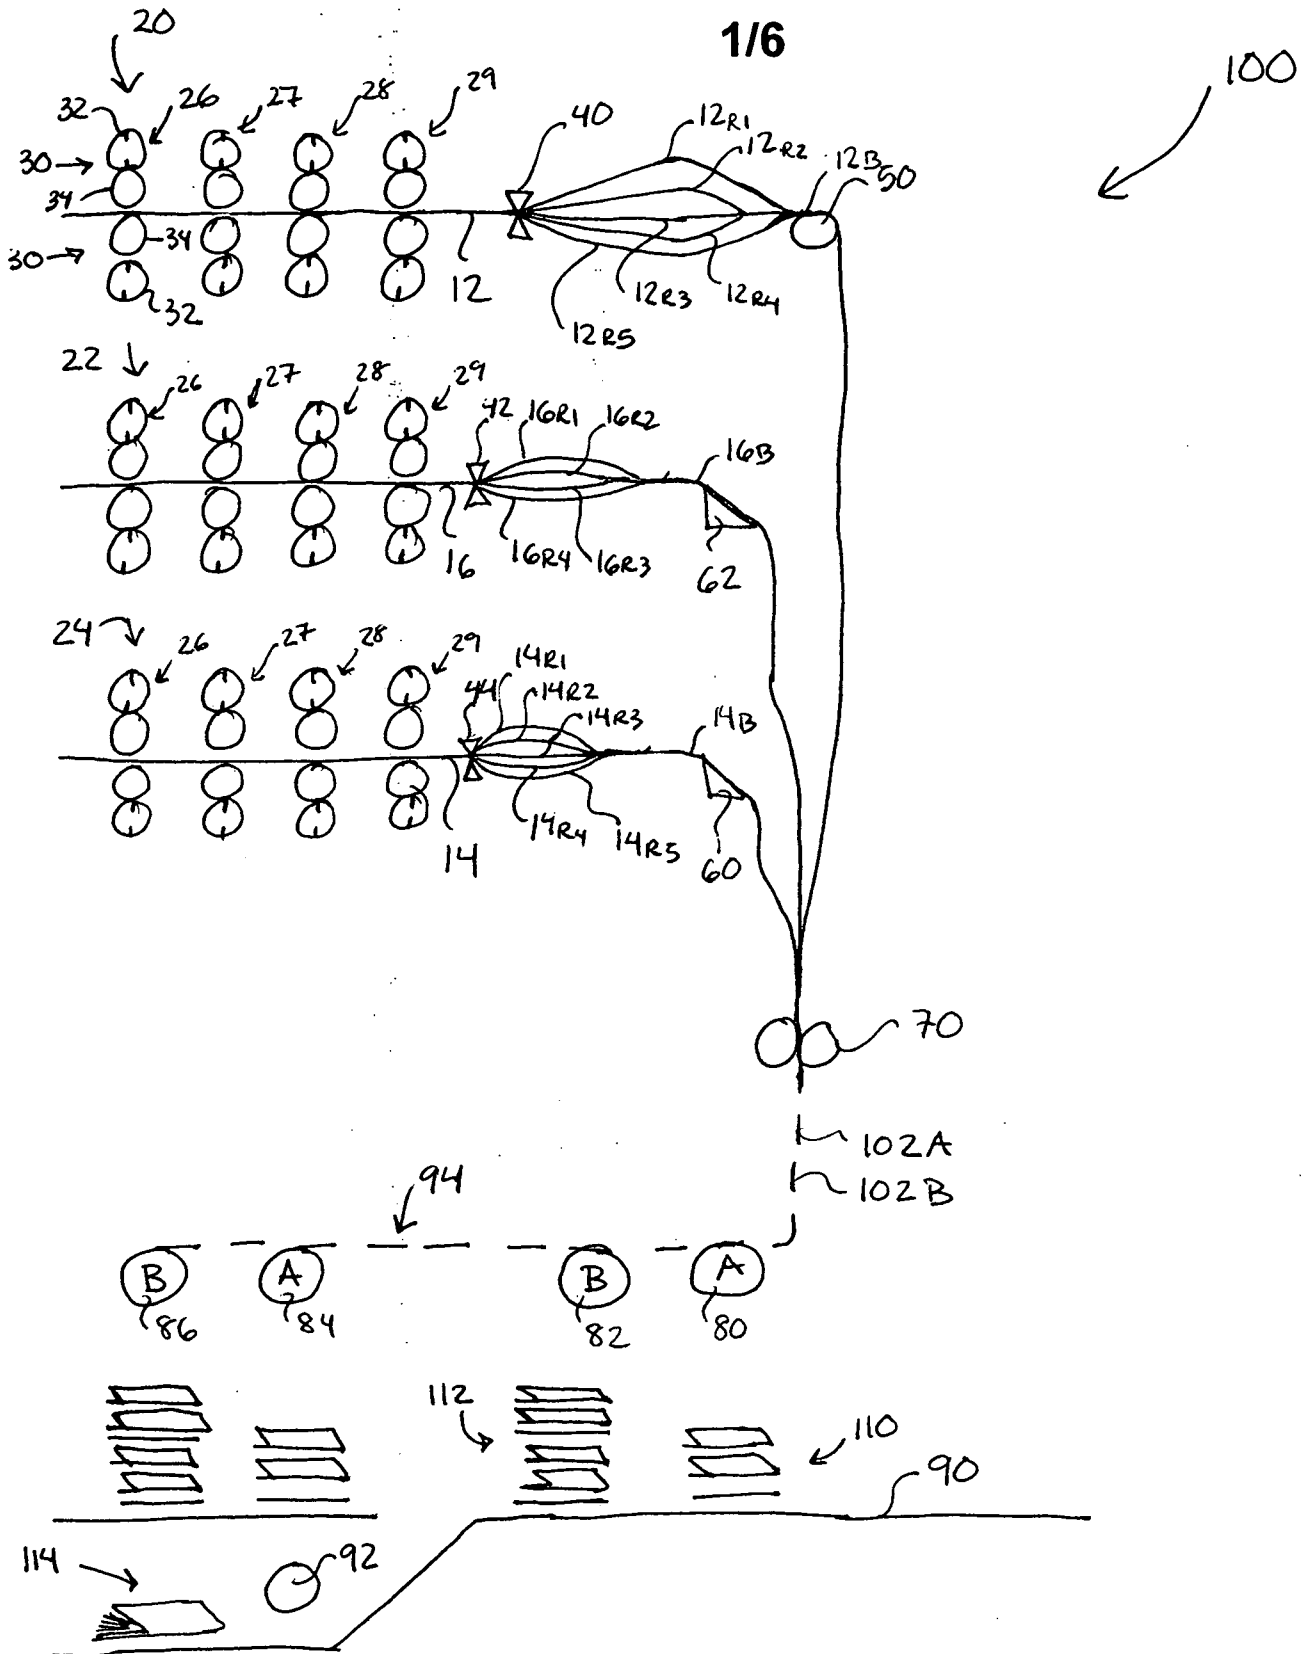 1/6
20
100
32
26
27
28
29
40
12R1
12R2
12B
50
30
34
34
30
32
12
12R3
12R4
12R5
22
26
27
28
29
42
16R1
16R2
16B
16
16R4
16R3
62
24
26
27
28
29
44
14R1
14R2
14R3
14B
14
14R4
14R5
60
70
102A
102B
94
B
A
B
A
86
84
82
80
112
110
90
114
92